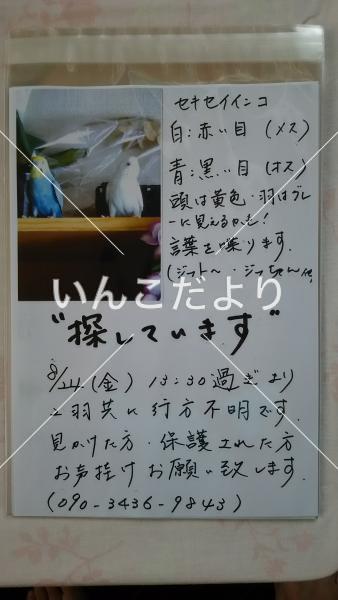 セキセイインコ
白:赤い目 (メス)
青:黒い目 (オス)
頭は黄色・羽はブルーに見えるかも!
言葉を喋ります。
(ジフト〜・ジッちゃん他)
いんこだより
"探しています"
8/24.(金) 13:30過ぎより
二羽共に行方不明です.
見かけた方・保護された方
お声掛けお願い致します.
(090-3436-9843)